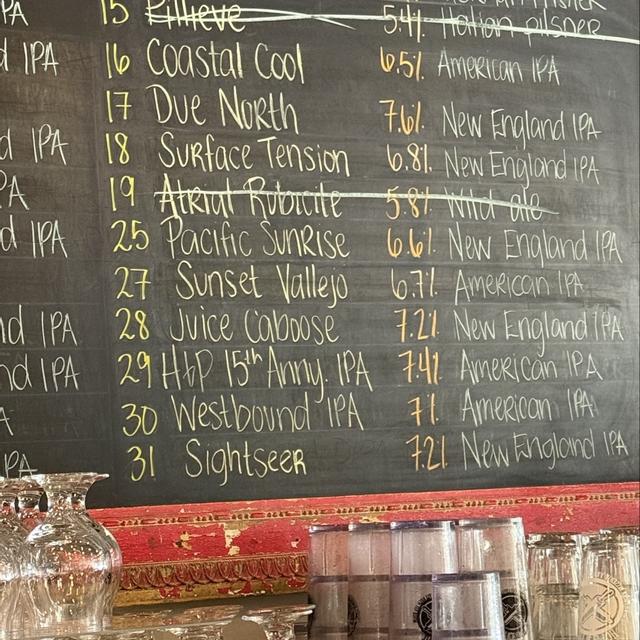 PA
15 Pillieve 5.4% Italian pilsner
d IPA
16 Coastal Cool 6.5% American IPA
17 Due North 7.6% New England IPA
d IPA
18 Surface Tension 6.8% New England IPA
PA
19 Atrial Rubicite 5.8% Wild ale
d IPA
25 Pacific Sunrise 6.6% New England IPA
27 Sunset Vallejo 6.7% American IPA
nd IPA
28 Juice Caboose 7.2% New England IPA
nd IPA
29 H&P 15th Anny. IPA 7.4% American IPA
A
30 Westbound IPA 7% American IPA
PA
31 Sightseer 7.2% New England IPA